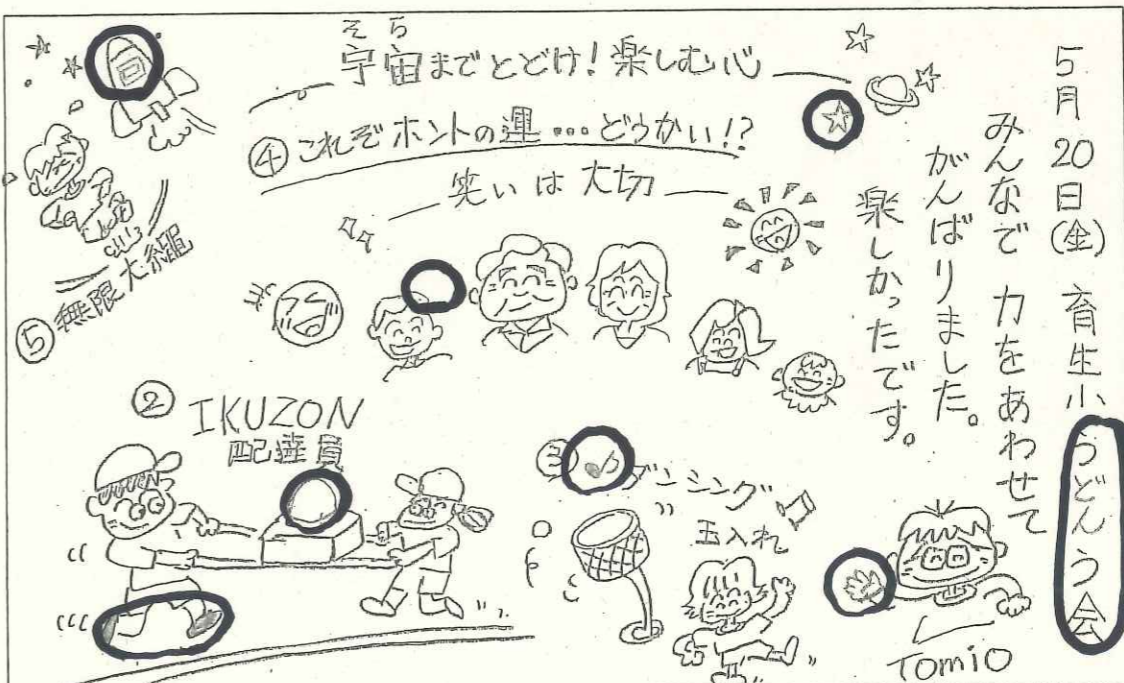 5月20日(金) 育生小うどんう会
みんなで 力をあわせて
がんばりました。
楽しかったです。
そら
宇宙までとどけ!楽しむ心
④これぞホントの運…どうかい!?
笑いは大切
⑤無限大縄
② IKUZON
配達員
ダンシング
玉入れ
Tomio